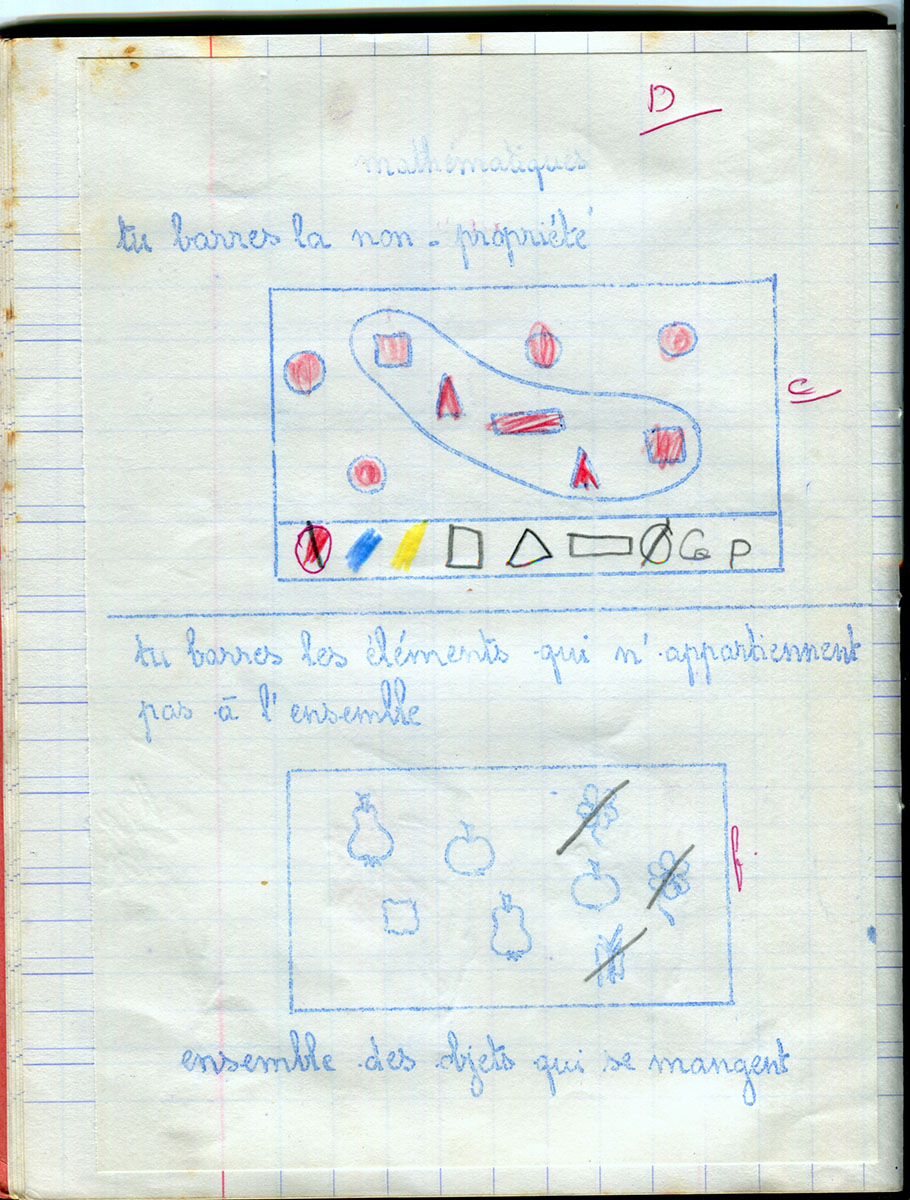 D
mathématiques
tu barres la non-propriété
C
G P
tu barres les éléments qui n'appartiennent
pas à l'ensemble
f.
ensemble des objets qui se mangent